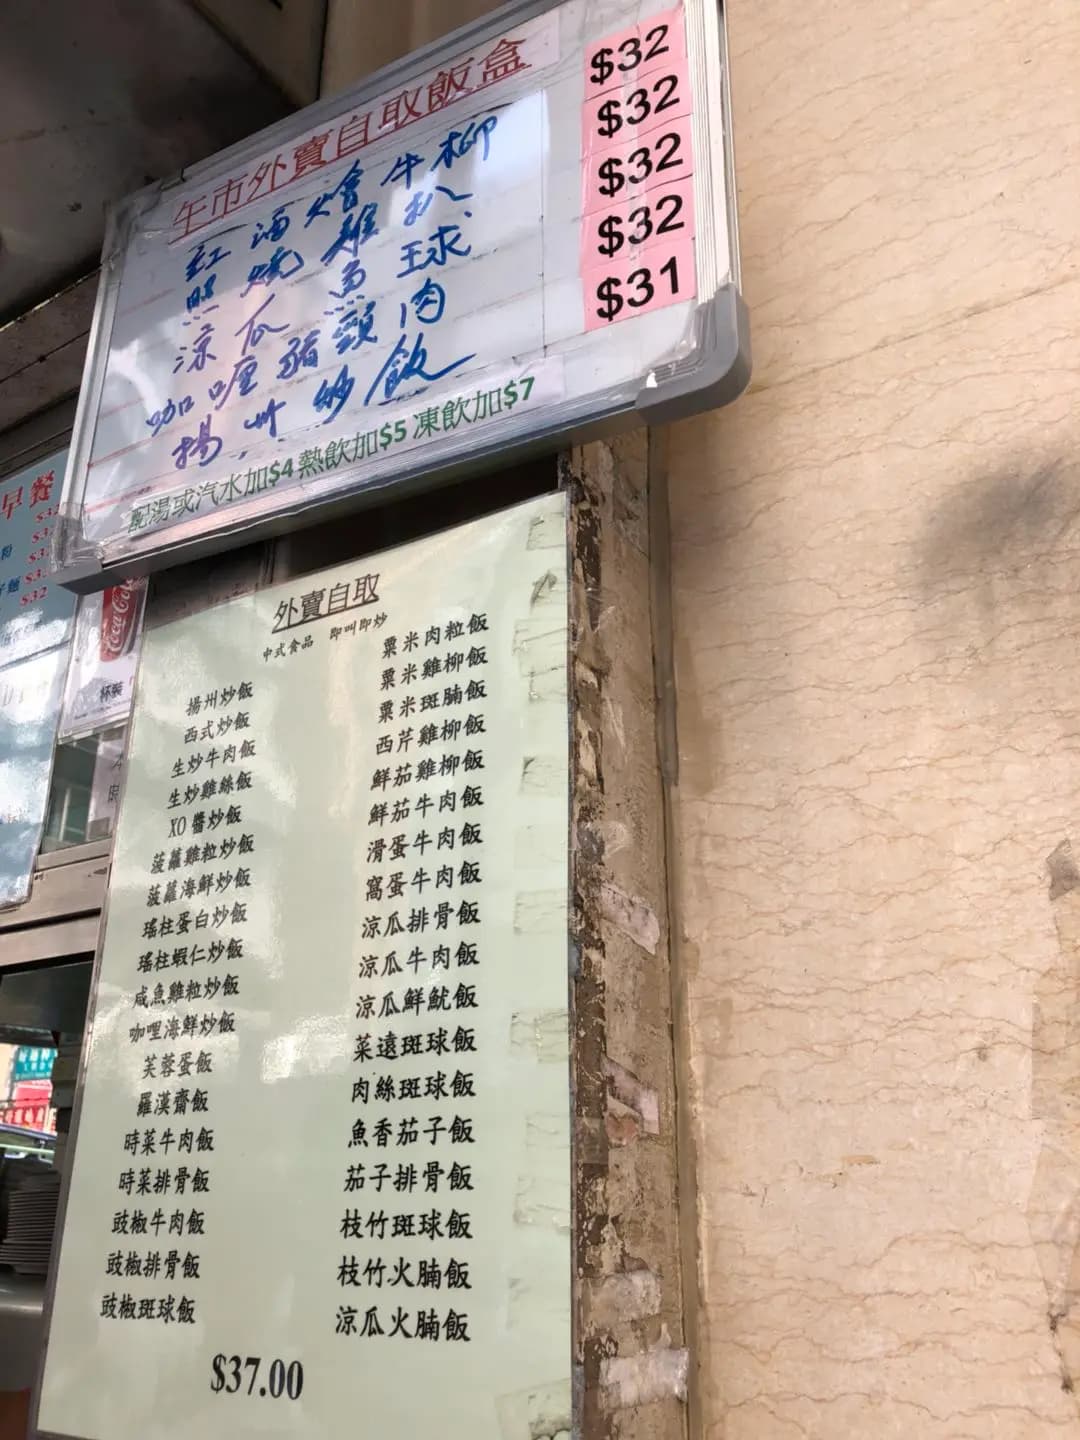 午市外賣自取飯盒
紅酒燴牛柳 $32
照燒雞扒 $32
涼瓜魚球 $32
咖喱豬頸肉 $32
揚州炒飯 $31
配湯或汽水加$4 熱飲加$5 凍飲加$7
早餐
Coca-Cola
杯裝
外賣自取
中式食品 即叫即炒
揚州炒飯
西式炒飯
生炒牛肉飯
生炒雞絲飯
XO醬炒飯
菠蘿雞粒炒飯
菠蘿海鮮炒飯
瑤柱蛋白炒飯
瑤柱蝦仁炒飯
咸魚雞粒炒飯
咖哩海鮮炒飯
芙蓉蛋飯
羅漢齋飯
時菜牛肉飯
時菜排骨飯
豉椒牛肉飯
豉椒排骨飯
豉椒斑球飯
粟米肉粒飯
粟米雞柳飯
粟米斑腩飯
西芹雞柳飯
鮮茄雞柳飯
鮮茄牛肉飯
滑蛋牛肉飯
窩蛋牛肉飯
涼瓜排骨飯
涼瓜牛肉飯
涼瓜鮮魷飯
菜遠斑球飯
肉絲斑球飯
魚香茄子飯
茄子排骨飯
枝竹斑球飯
枝竹火腩飯
涼瓜火腩飯
$37.00